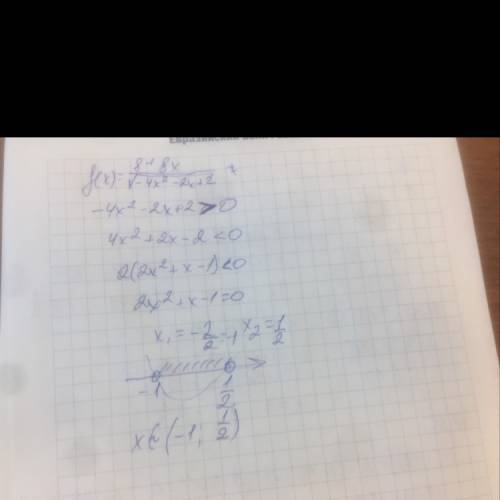 f(x) = (8+8x)/√(-4x²-2x+2)
-4x²-2x+2>0
4x²+2x-2<0
2(2x²+x-1)<0
2x²+x-1=0
x₁=-2/2=-1 x₂=1/2
-1 1/2
x∈(-1; 1/2)